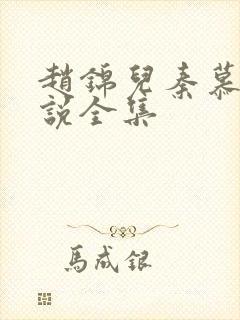 趙錦兒秦慕
說全集
馬成銀